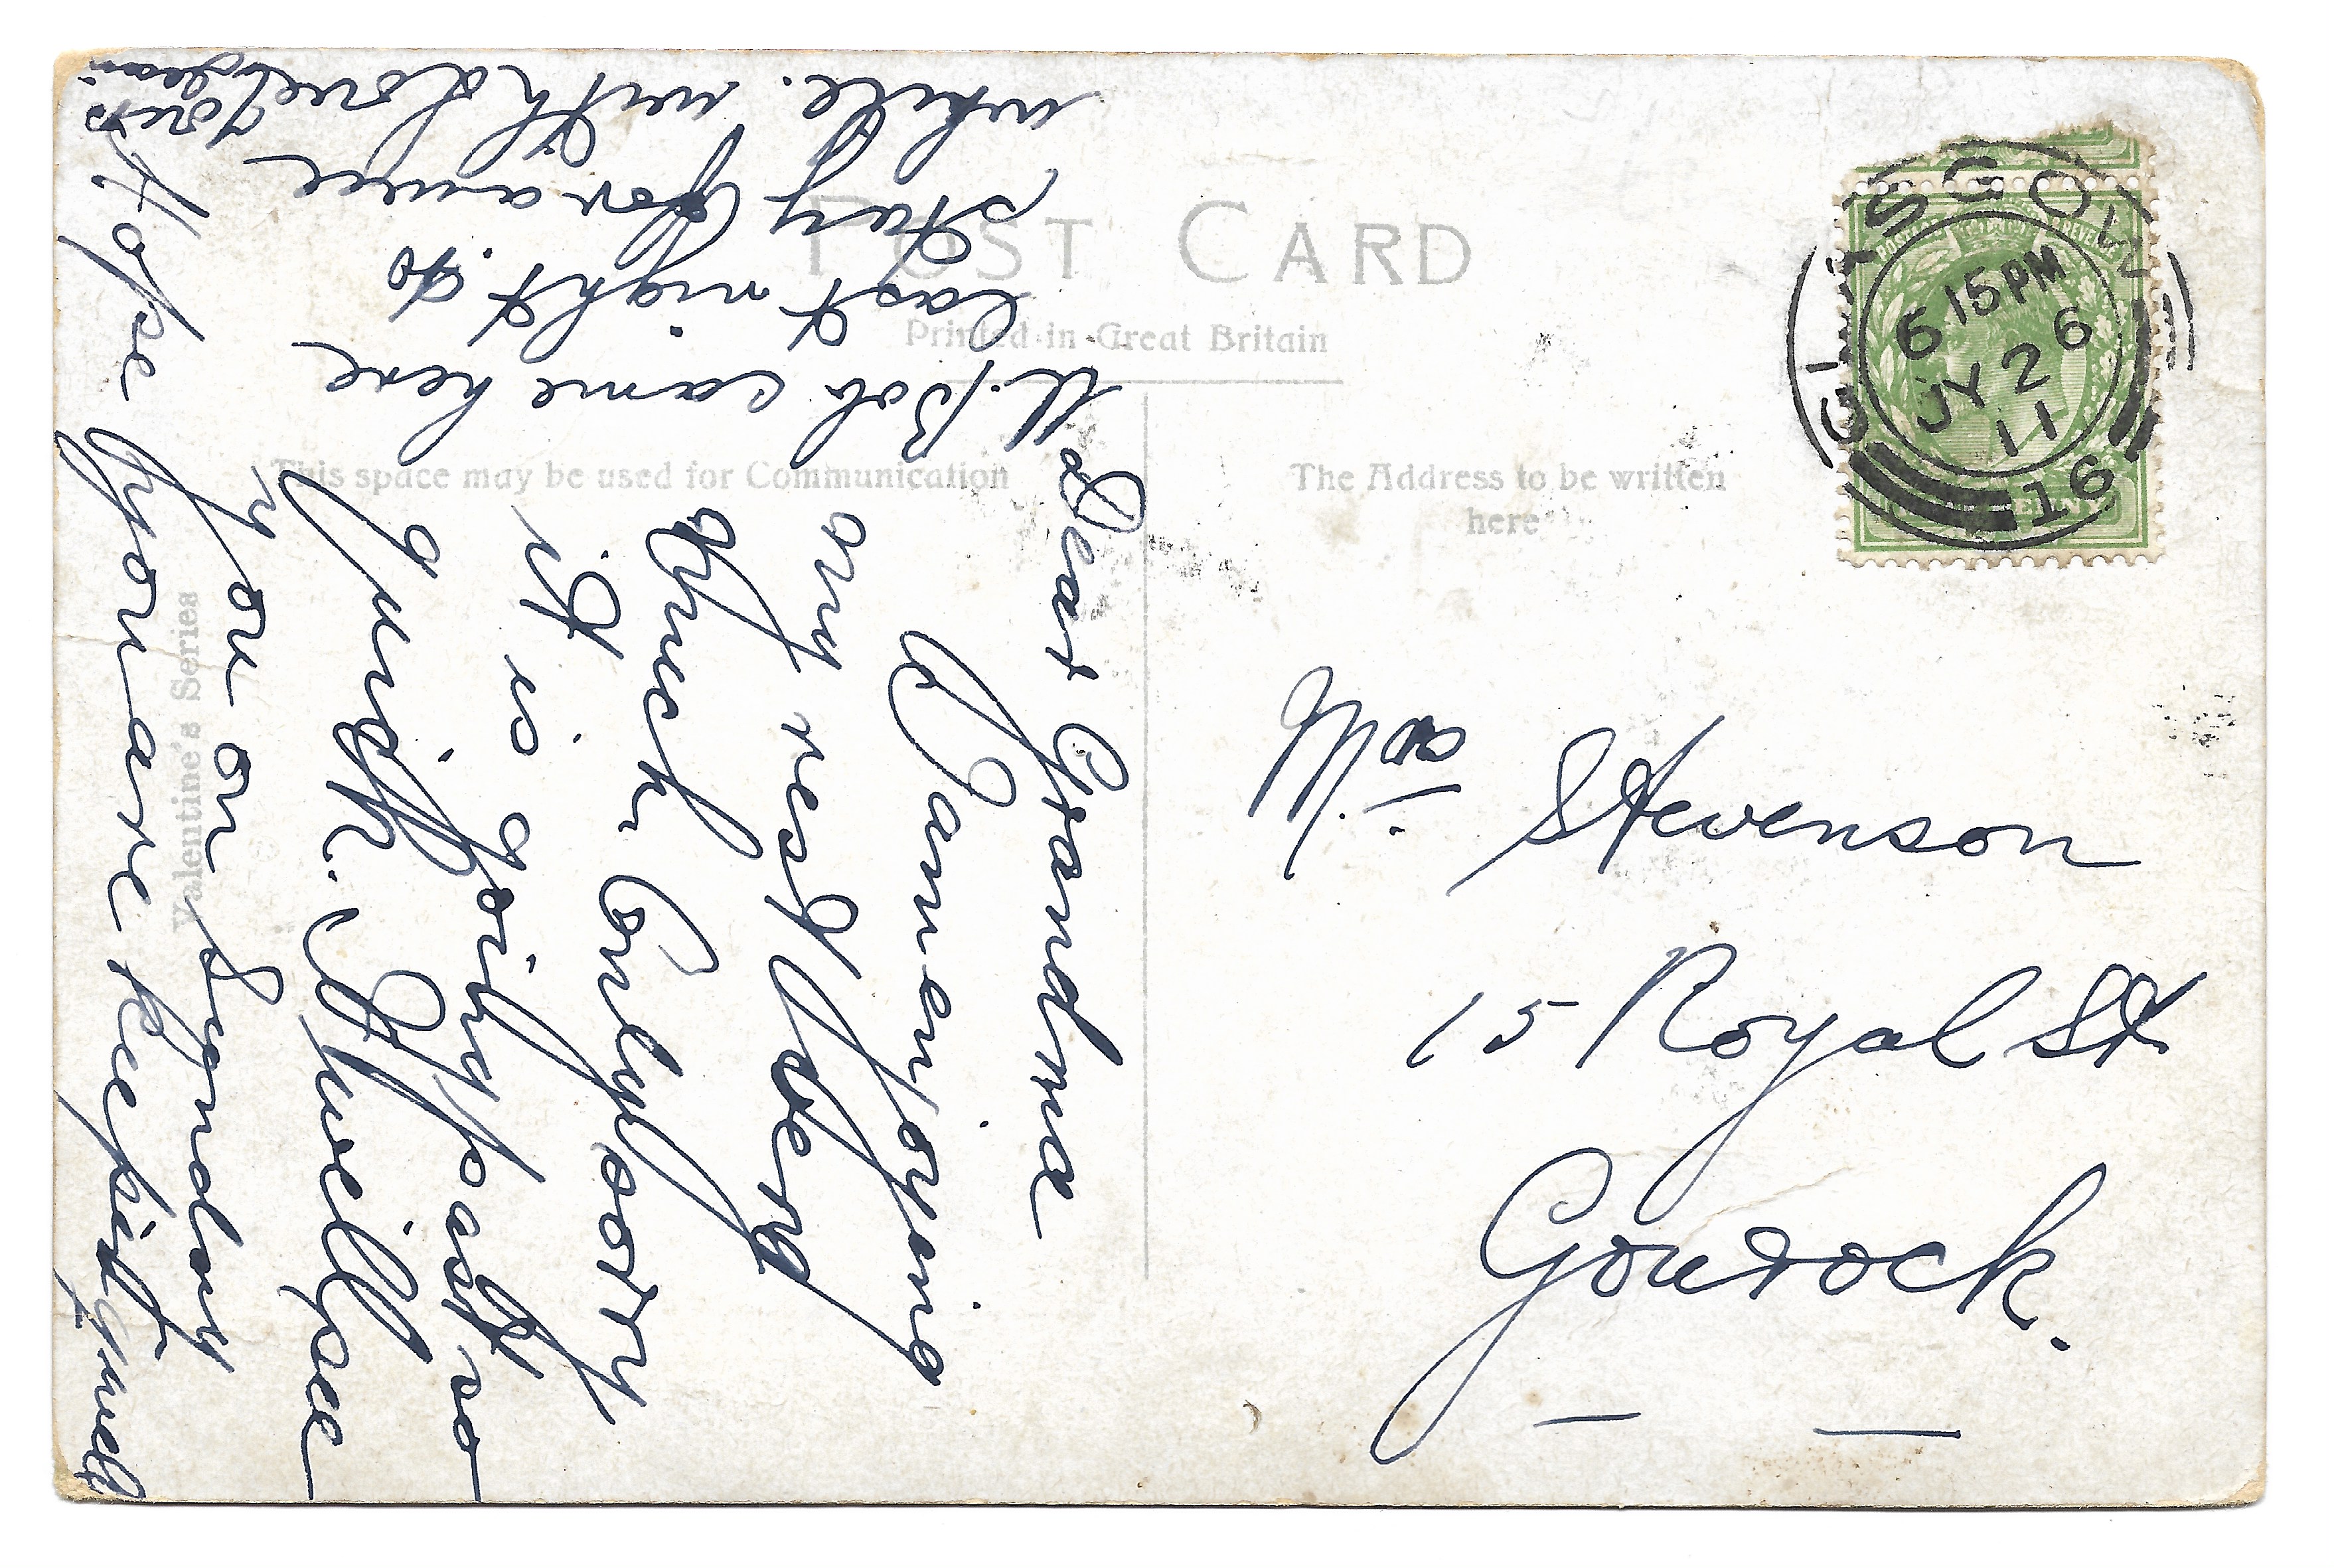 POST CARD
Printed in Great Britain
This space may be used for Communication
The Address to be written
here
Valentine's Series
GLASGOW
6 15PM
JY 26
11
16
POSTAGE REVENUE
Mrs. Stevenson
15 Royal St
Gourock.
Dear Grandma
I am enjoying
my rest very
much. Only sorry
it is going past so
quick. I will see
you on Sunday
Hope you are keeping well
U. Bob came here
last night to
stay for a wee
while. with love
Jean